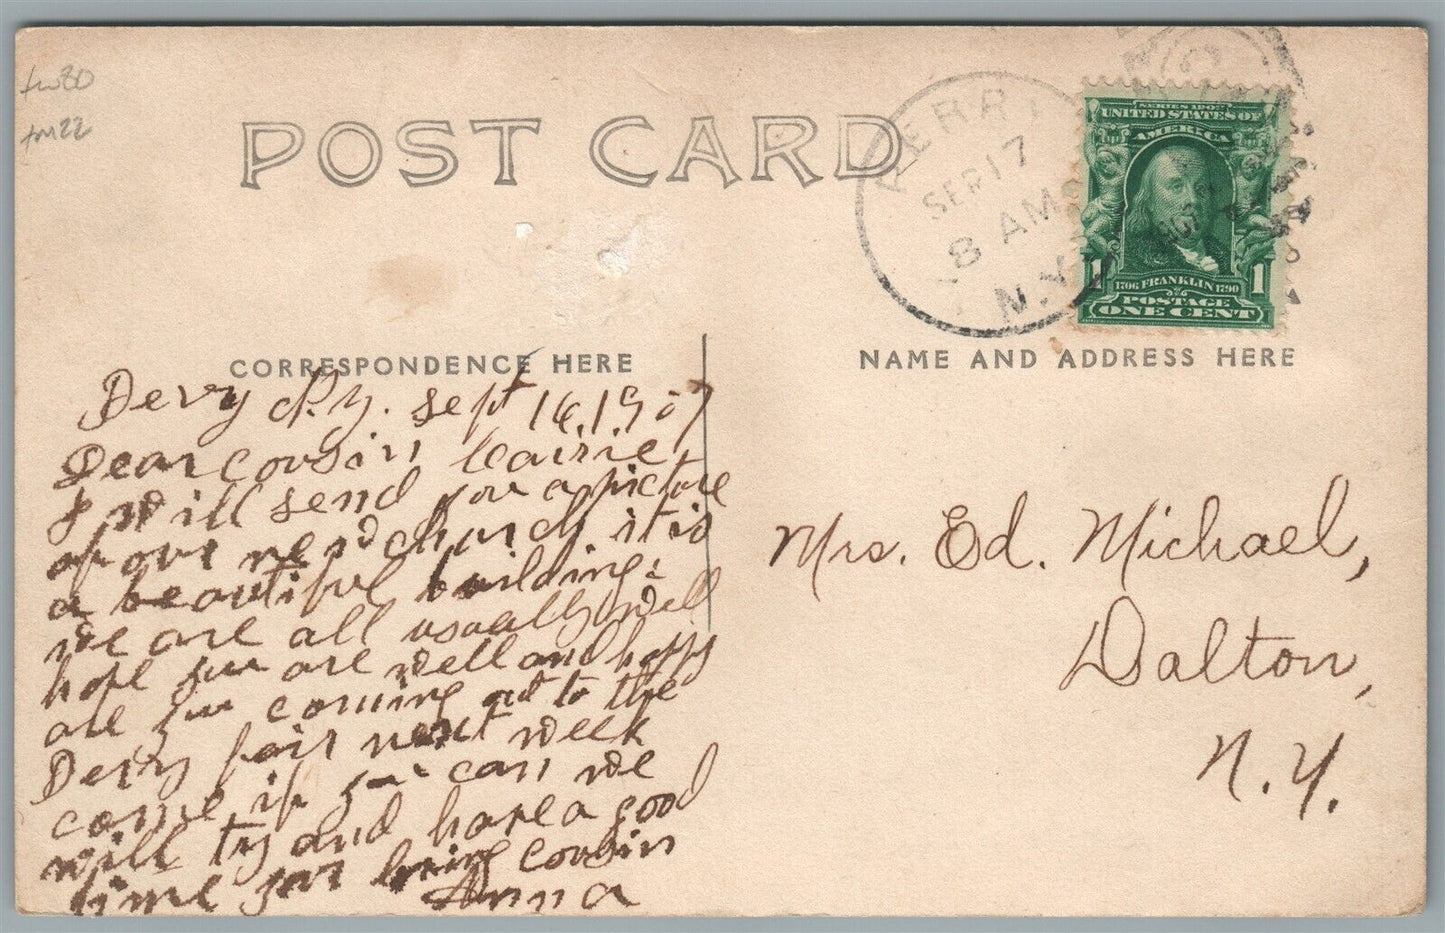 tw80
tm22
POST CARD
PERRY
SEP 17
8 AM
N.Y.
SERIES 1902
UNITED STATES OF
AMERICA
1706 FRANKLIN 1790
1 1
POSTAGE
ONE CENT
CORRESPONDENCE HERE
NAME AND ADDRESS HERE
Perry N.Y. Sept 16, 1907
Dear Cousin Carrie,
I will send you a picture
of our new church it is
a beautiful building.
we are all usually well
hope you are well and happy
are you coming out to the
Perry fair next week
come if you can we
will try and have a good
time your loving cousin
Anna
Mrs. Ed. Michael,
Dalton,
N.Y.